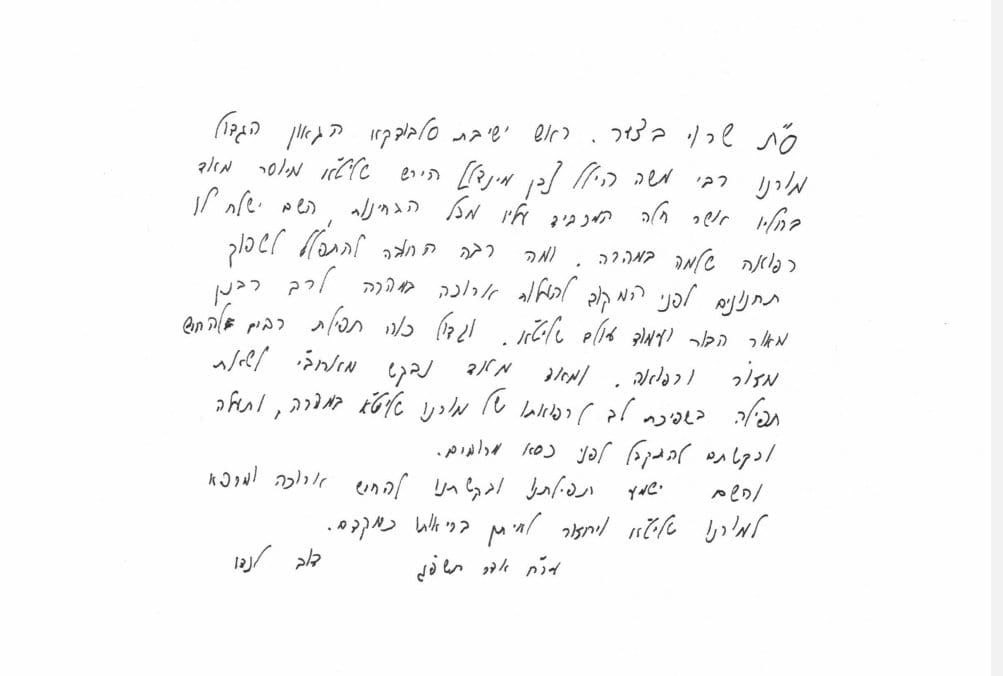 ס"ת שרוי בצער. ראש ישיבת סלבודקא הגאון הגדול
מורנו רבי משה הילל [בן מינדל] הירש שליט"א מיוסר מאד
בחליו אשר חלה המכביד עליו מכל הבחינות, השם ישלח לו
רפואה שלמה במהרה. ומה רבה החובה להתפלל לשפוך
תחנונים לפני המקום להעלות ארוכה במהרה לרב רבנן
מאור הדור ועמוד עולם שליט"א. וגדול כוח תפילת רבים להחיש
מזור ורפואה. ומאד מאוד נבקש מאחב"י לשאת
תפילה בשפיכת לב לרפואתו של מורנו שליט"א במהרה, ותעלה
ובקשתם להתקבל לפני כסא מרומים.
והשם ישמע תפילתנו ובקשתנו להחיש ארוכה ומרפא
למורנו שליט"א ויחזור לאיתן בריאותו כמקדם.
מר"ח אדר תשפ"ג דוב לנדו